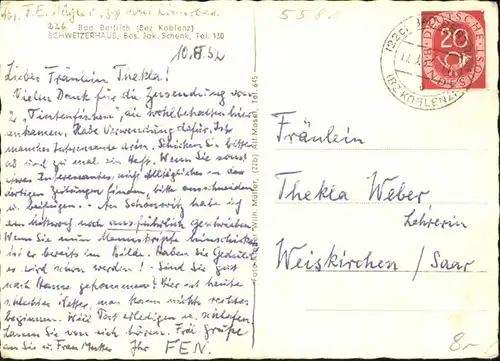 5582
22b Bad Bertrich (Bez Koblenz)
SCHWEIZERHAUS, Bes. Jak. Schenk, Tel. 130
10.II.52
Lieber Fräulein Thekla!
Vielen Dank für die Zusendung von
2 "Tintenfischen", die wohlbehalten hier
ankamen. Habe Verwendung dafür. Ist
manches Interessante drin. Schicken Sie bitte
ab und zu mal ein Heft. Wenn Sie sonst
etwas Interessantes, nicht Alltägliches in den
dortigen Zeitungen finden, bitte ausschneiden
u. beifügen. An habe ich
am noch ausführlich geschrieben.
Wenn Sie nun Manuskripte hinschicken,
ist er bereits im Bilde. Haben Sie Geduld,
es wird schon werden! - Sind Sie gut
nach Hause gekommen? Hier ist heute
schlechtes Wetter, man kann nichts rechtes
beginnen. Will Post erledigen u.
Lassen Sie von sich hören. Frdl. Grüße
an Sie u. Frau Mutter Ihr FEN.
Wilh. Müller, (22b) Alf Mosel, Tel. 645
(22c)
(BZ. KOBLENZ)
DEUTSCHE BUNDESPOST
20
Fräulein
Thekla Weber
Lehrerin
Weiskirchen / Saar
8.-